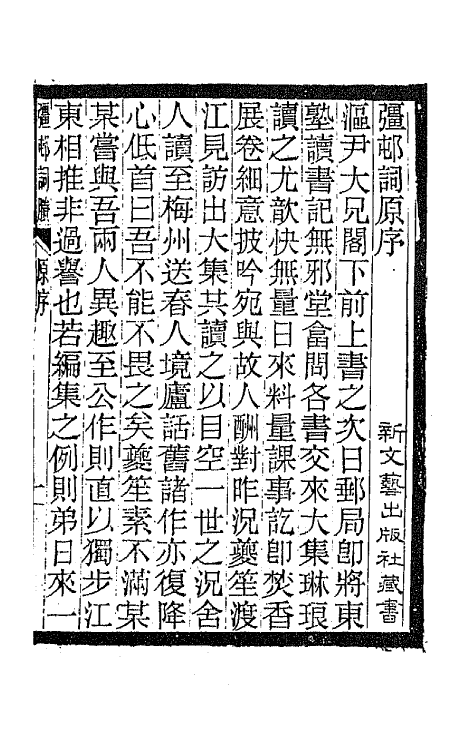 彊邨詞原序
新文藝出版社藏書
漚尹大兄閣下前上書之次日郵局卽將東
塾讀書記無邪堂畣問各書交來大集琳琅
讀之尤歆快無量日來料量課事訖卽焚香
展卷細意披吟宛與故人酬對昨況夔笙渡
江見訪出大集共讀之以目空一世之況舍
人讀至梅州送春人境廬話舊諸作亦復降
心低首曰吾不能不畏之矣夔笙素不滿某
某嘗與吾兩人異趣至公作則直以獨步江
東相推非過譽也若編集之例則弟日來一
彊邨詞 原序 一